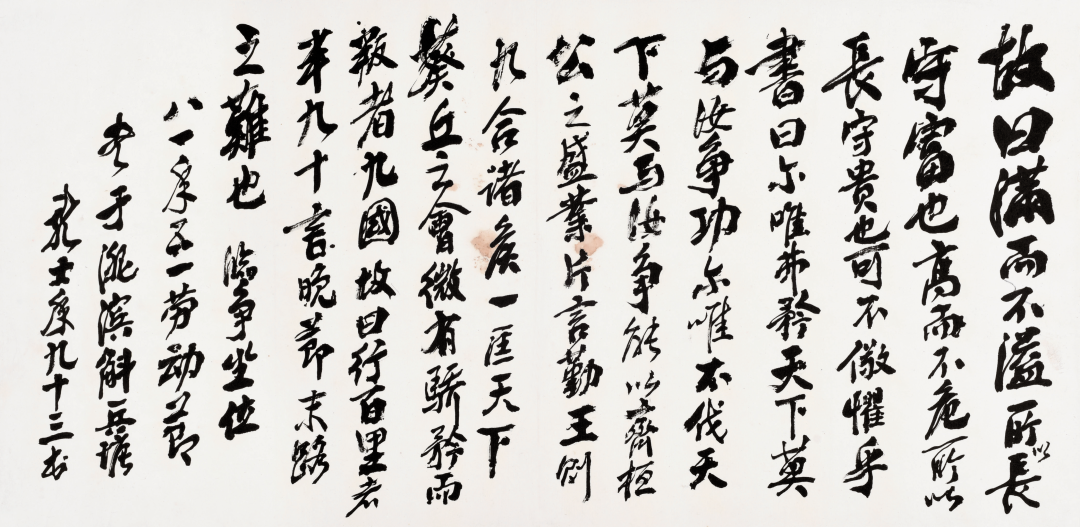 故曰滿而不溢所以長
守富也高而不危所以
長守貴也可不儆懼乎
書曰尔唯弗矜天下莫
与汝争功尔唯不伐天
下莫与汝争能以齊桓
公之盛業片言勤王則
九合諸侯一匡天下
葵丘之會微有驕矜而
叛者九國故曰行百里者
半九十言晚節末路
之難也 臨争坐位
八一年五一劳动節
书于淝滨斛兵塘
九十三书